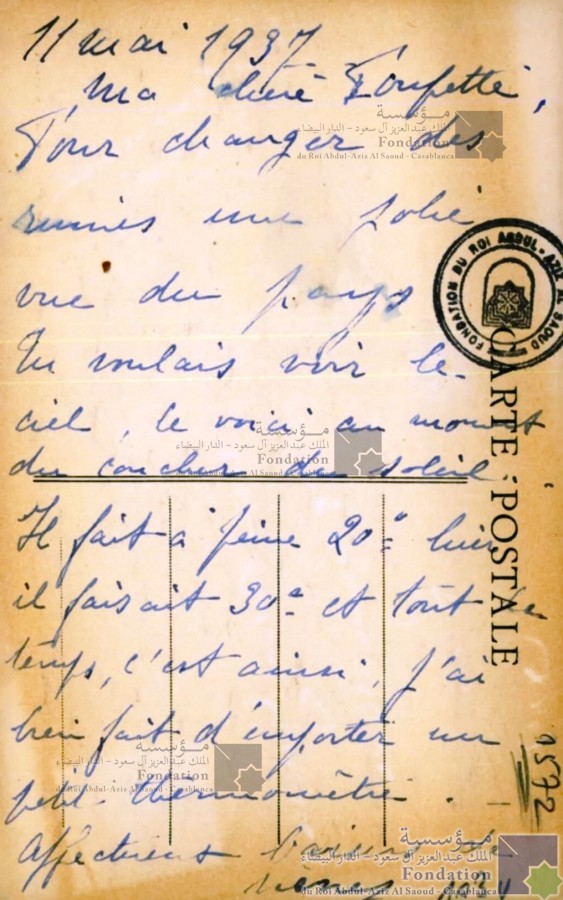 11 mai 1937
Ma chère Toupette,
Pour changer des
ruines une jolie
vue du pays
Tu voulais voir le
ciel, le voici au moment
du coucher du soleil
Il fait à peine 20° hier
il faisait 30° et tout le
temps, c'est ainsi, j'ai
bien fait d'emporter un
petit thermomètre.
Affectueux baisers de
CARTE POSTALE
1572
FONDATION DU ROI ABDUL-AZIZ AL SAOUD
مؤسسة
الملك عبدالعزيز آل سعود - الدار البيضاء
Fondation
du Roi Abdul-Aziz Al Saoud - Casablanca
مؤسسة
الملك عبدالعزيز آل سعود - الدار البيضاء
Fondation
du Roi Abdul-Aziz Al Saoud - Casablanca
مؤسسة
الملك عبدالعزيز آل سعود - الدار البيضاء
Fondation
du Roi Abdul-Aziz Al Saoud - Casablanca
مؤسسة
الملك عبدالعزيز آل سعود - الدار البيضاء
Fondation
du Roi Abdul-Aziz Al Saoud - Casablanca